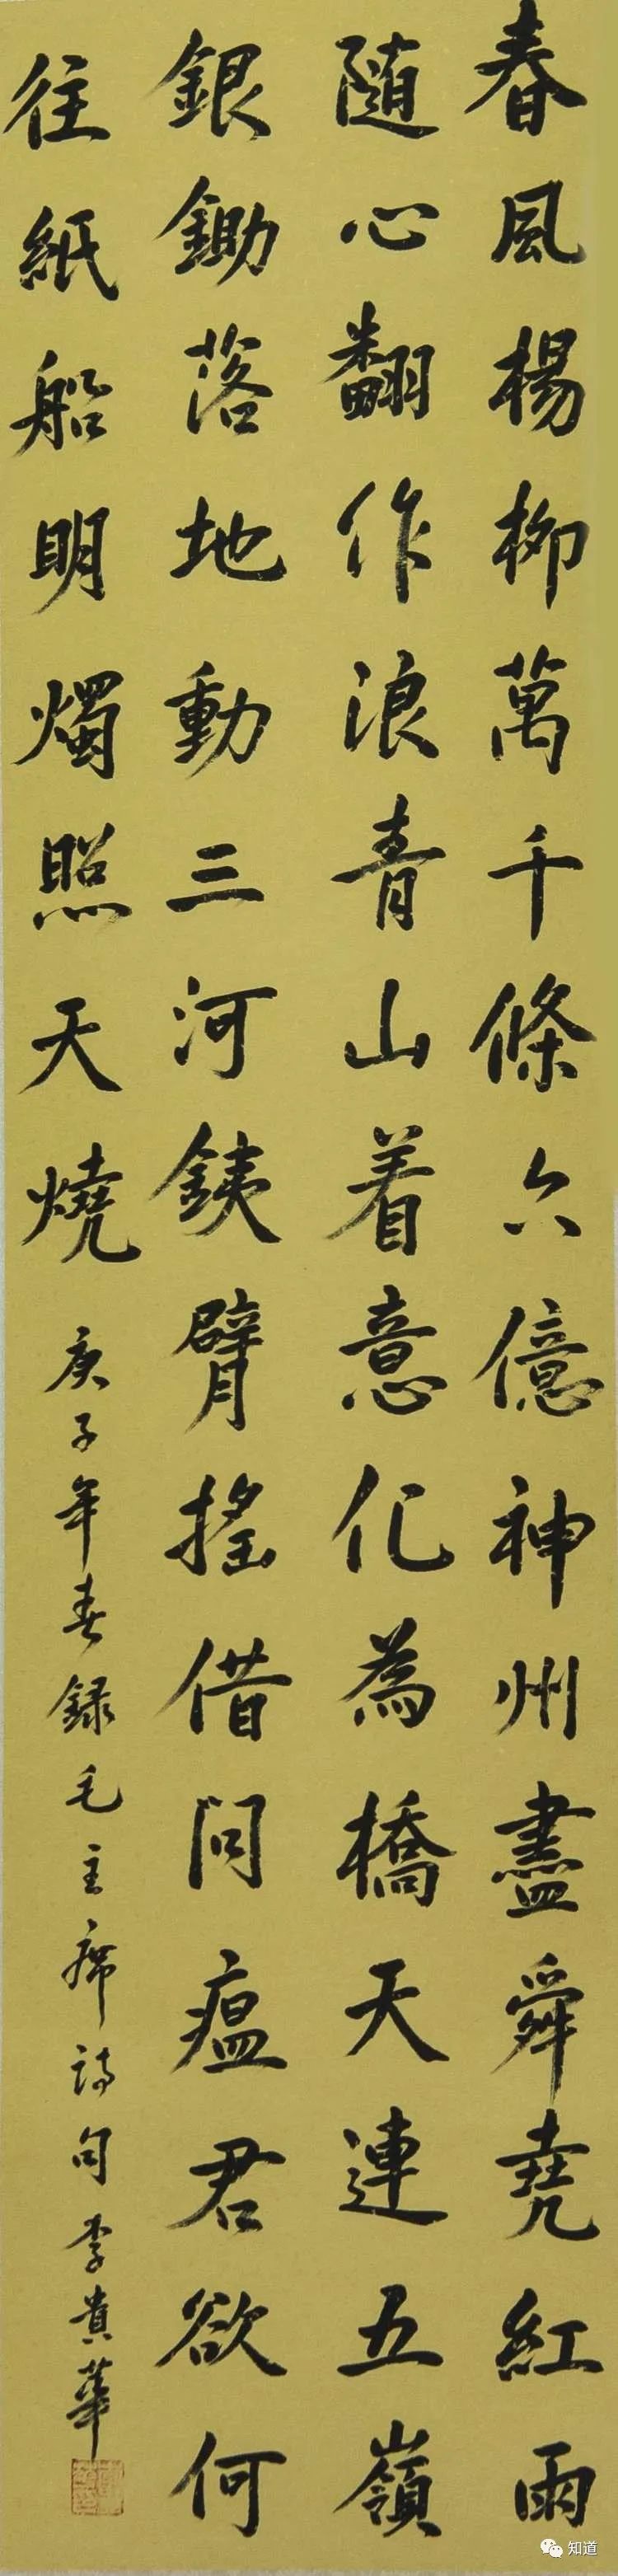 春風楊柳萬千條六億神州盡舜堯紅雨
随心翻作浪青山着意化為橋天連五嶺
銀鋤落地動三河銕臂搖借问瘟君欲何
往紙船明燭照天燒
庚子年春録毛主席詩句李貴華
知道